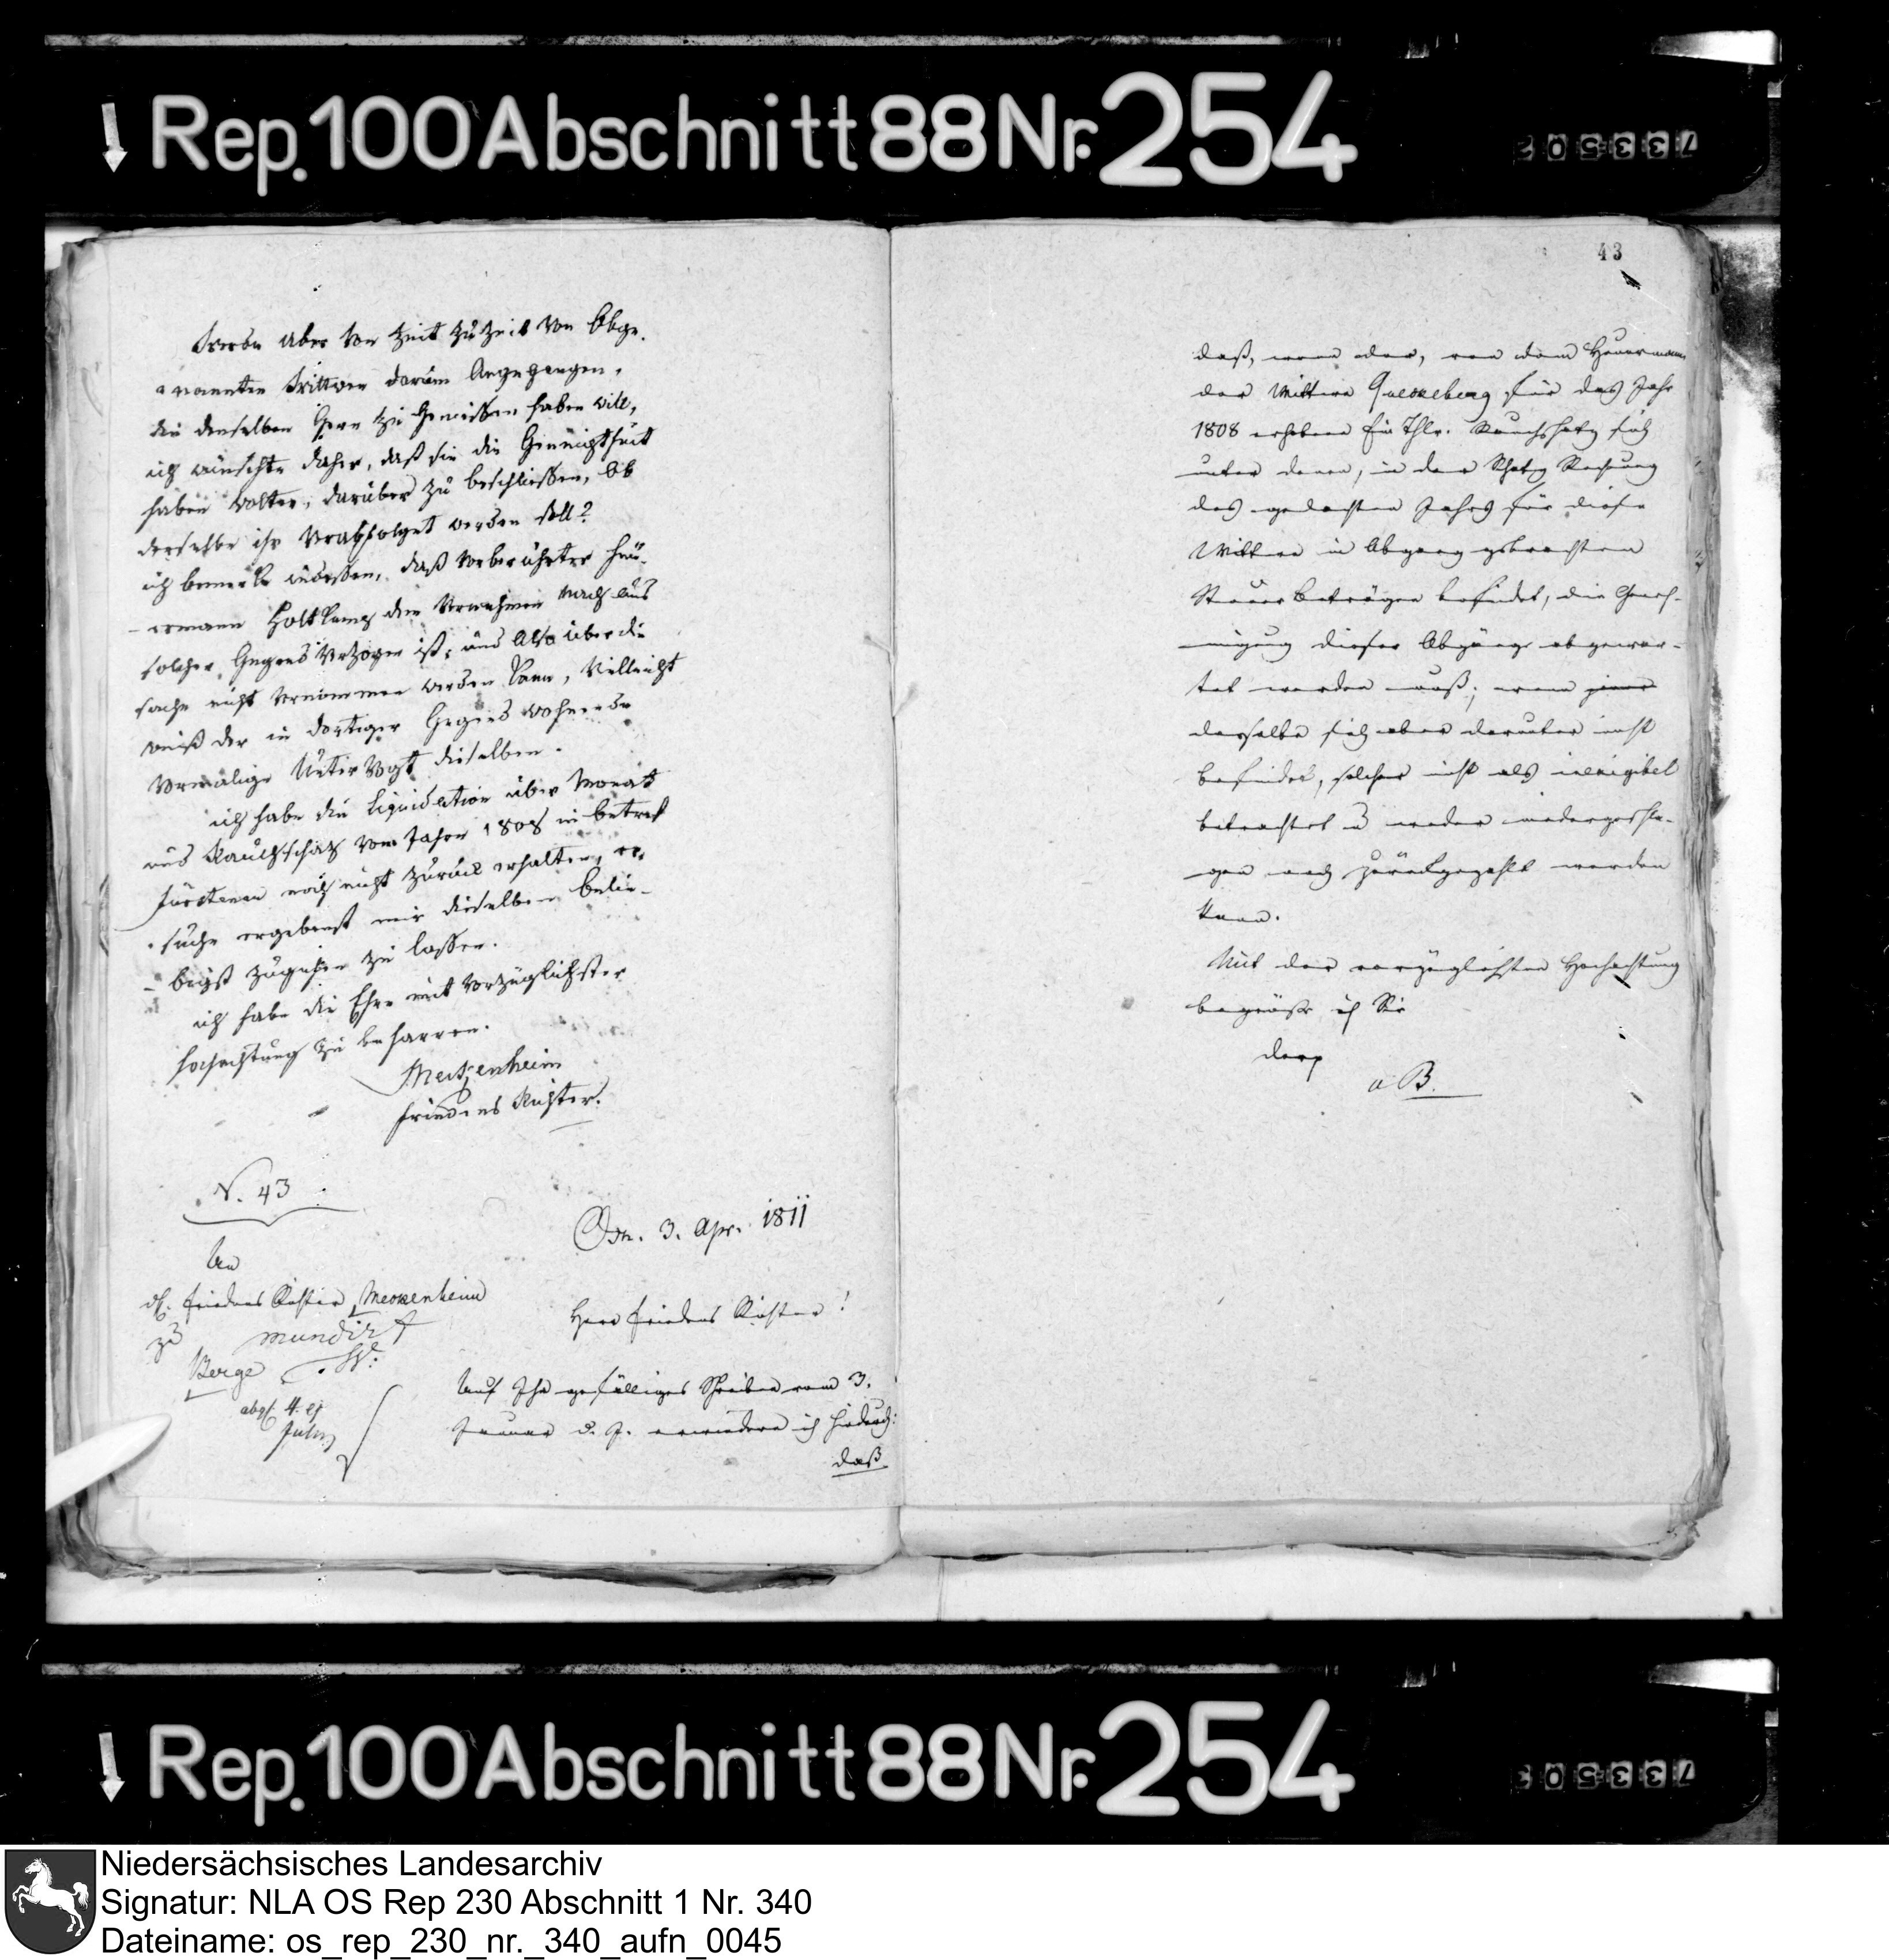 Rep. 100 Abschnitt 88 Nr. 254
733502
43
werde aber von Zeit zu Zeit von Obge-
nannten Wittwe darum Angegangen,
die denselben gern zu geniessen haben will,
ich wünschte daher, daß sie die Geneigtheit
haben wolten, darüber zu beschliessen, Ob
derselbe ihr Verabfolget werden soll?
ich bemerke indessen, daß Vorberührter Heu-
ermann Holtkamp dem Vernehmen nach aus
solcher Gegend Verzogen ist, und Also über die
sache nicht Vernommen werden kann, Villeicht
weiß der in dortiger Gegend wohnende
Vormalige Unter Vogt dieselben.
ich habe die Liquidation über Monat
und Rauchschatz vom Jahre 1808 in betref
Fürstenau noch nicht zurück erhalten, er-
suche ergebenst mir dieselben belie-
bigst zugehen zu lassen.
ich habe die Ehre mit Vorzüglichster
hochachtung zu beharren.
Meszenheim
friedens Richter.
N. 43
Osn. 3. Apr. 1811
An
H. Friedens Richter Meszenheim
zu
Berge
mundirt
W.
abgs. 4. ej
Herr Friedens Richter!
Auf Ihr gefälliges Schreiben vom 3.
Januar d. J. erwiedere ich hiedurch:
daß
daß, wenn der, von dem Heuermann
der Wittwe Quesseberg für das Jahr
1808 erhobene Ein Thlr. Rauchschatz sich
unter denen, in der Schatz Rechnung
des gedachten Jahrs für diese
Wittwe in Abgang gebrachten
Steuer Beträgen befindet, die Geneh-
migung dieser Abgänge abgewar-
tet werden muß; wenn jener
derselbe sich aber darunter nicht
befindet, solcher nicht als inexigibel
betrachtet u weder niedergeschla-
gen noch zurückgezahlt werden
kann.
Mit der vorzüglichsten Hochachtung
begrüße ich Sie
derp
v B.
Rep. 100 Abschnitt 88 Nr. 254
733503
Niedersächsisches Landesarchiv
Signatur: NLA OS Rep 230 Abschnitt 1 Nr. 340
Dateiname: os_rep_230_nr._340_aufn_0045